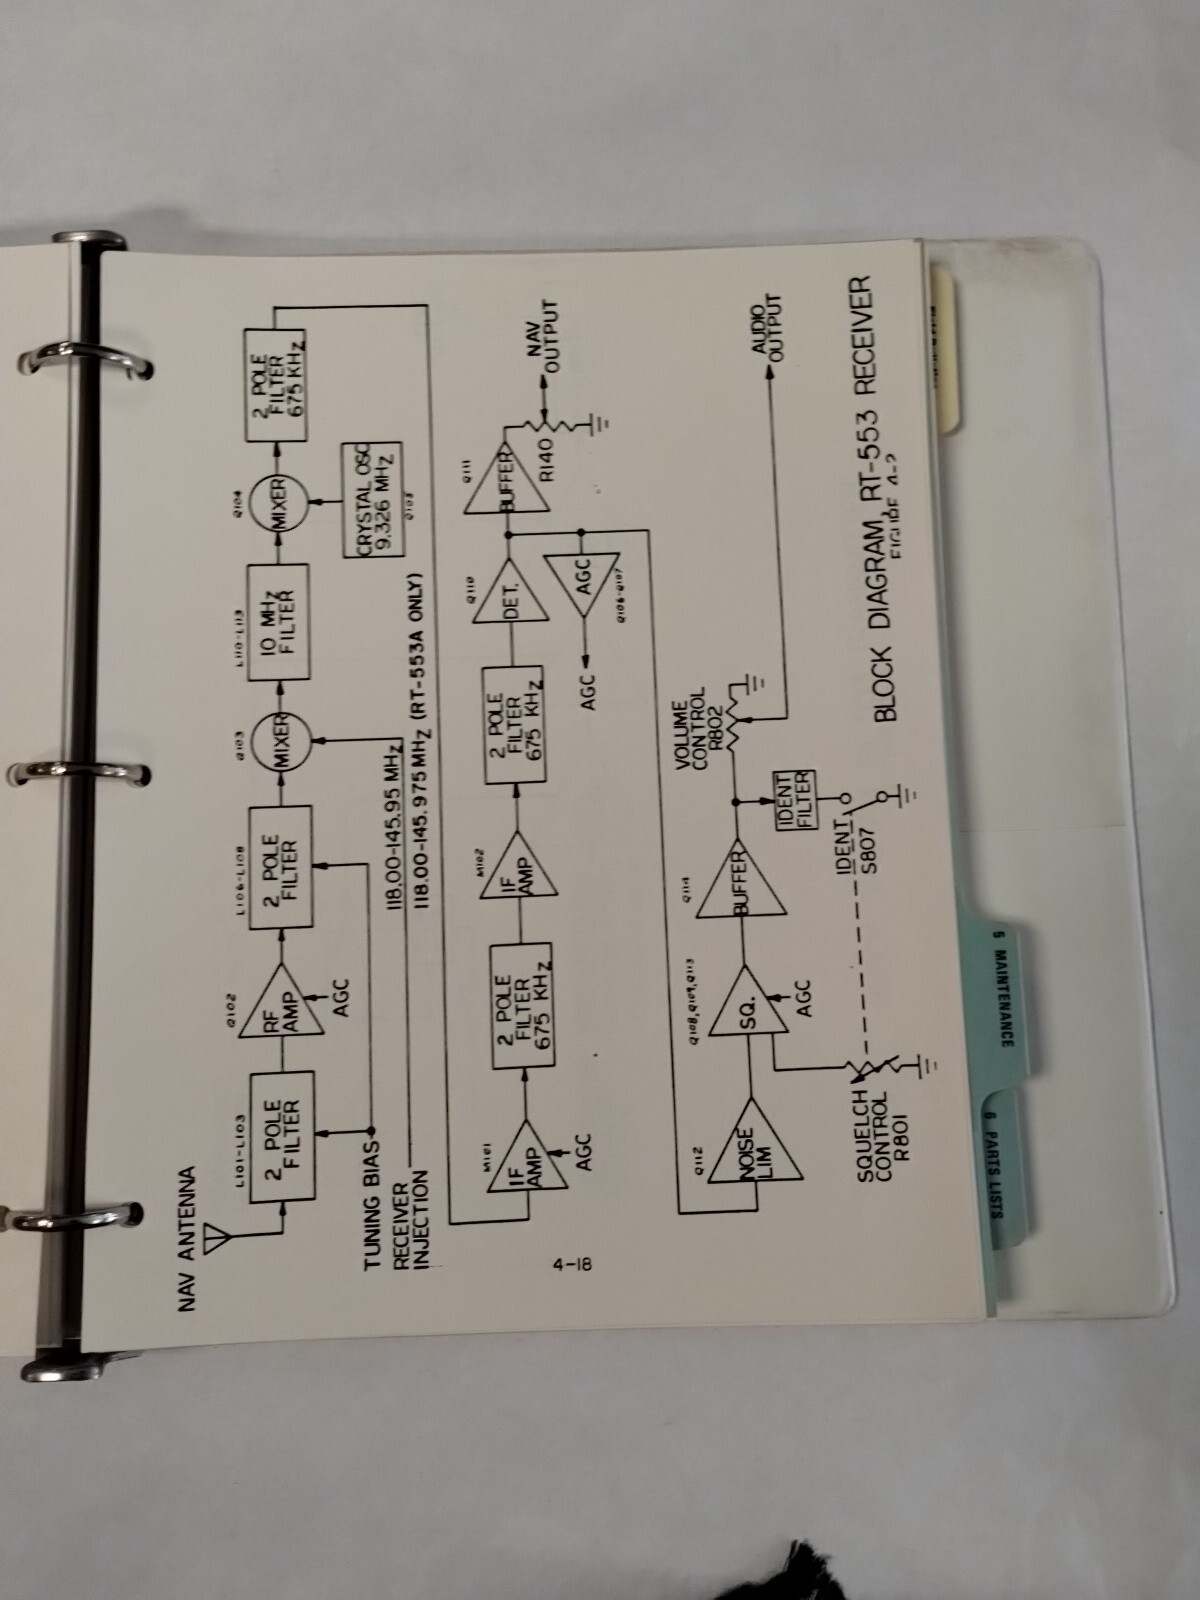 NAV ANTENNA
L101-L103
2 POLE
FILTER
Q102
RF
AMP
AGC
L106-L108
2 POLE
FILTER
Q103
MIXER
L110-L113
10 MHz
FILTER
Q104
MIXER
2 POLE
FILTER
675 KHz
CRYSTAL OSC
9.326 MHz
Q105
TUNING BIAS
RECEIVER
INJECTION
118.00-145.95 MHz
118.00-145.975 MHz (RT-553A ONLY)
M101
IF
AMP
AGC
2 POLE
FILTER
675 KHz
M102
IF
AMP
2 POLE
FILTER
675 KHz
Q110
DET.
Q111
BUFFER
R140
NAV
OUTPUT
AGC
Q106-Q107
AGC
4-18
Q112
NOISE
LIM
Q108,Q109,Q113
SQ.
AGC
Q114
BUFFER
VOLUME
CONTROL
R802
AUDIO
OUTPUT
IDENT
FILTER
IDENT.
S807
SQUELCH
CONTROL
R801
BLOCK DIAGRAM, RT-553 RECEIVER
FIGURE 4-2
5 MAINTENANCE
6 PARTS LISTS